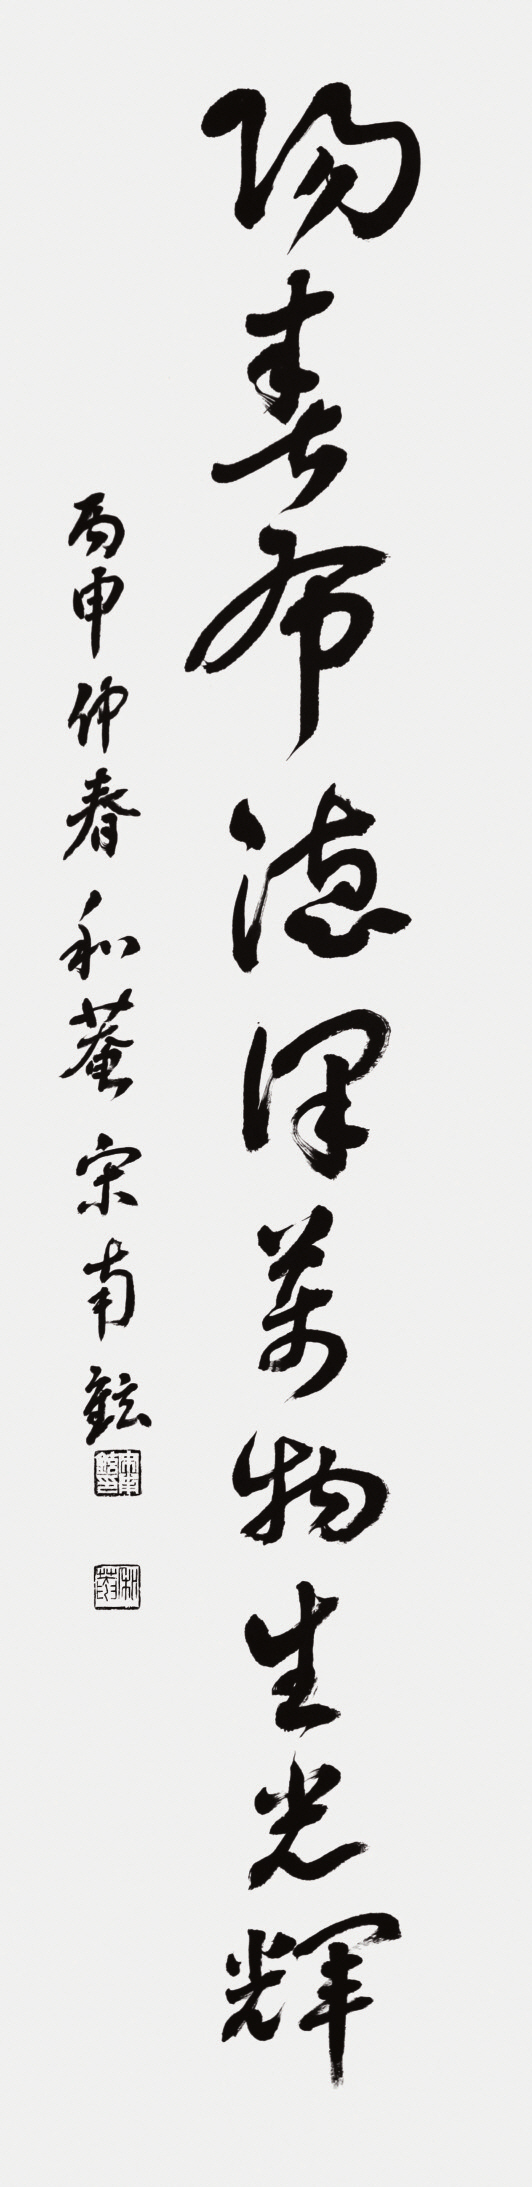 陽春布德澤萬物生光輝
丙申仲春和菴宋南鉉